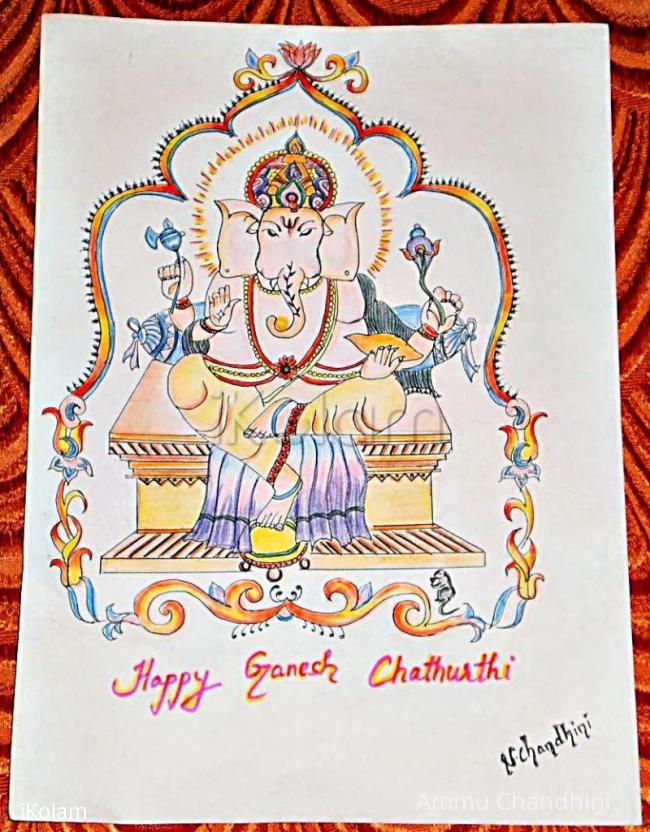 iKolam
Happy Ganesh Chathurthi
N.chandhini
Ammu Chandhini
iKolam